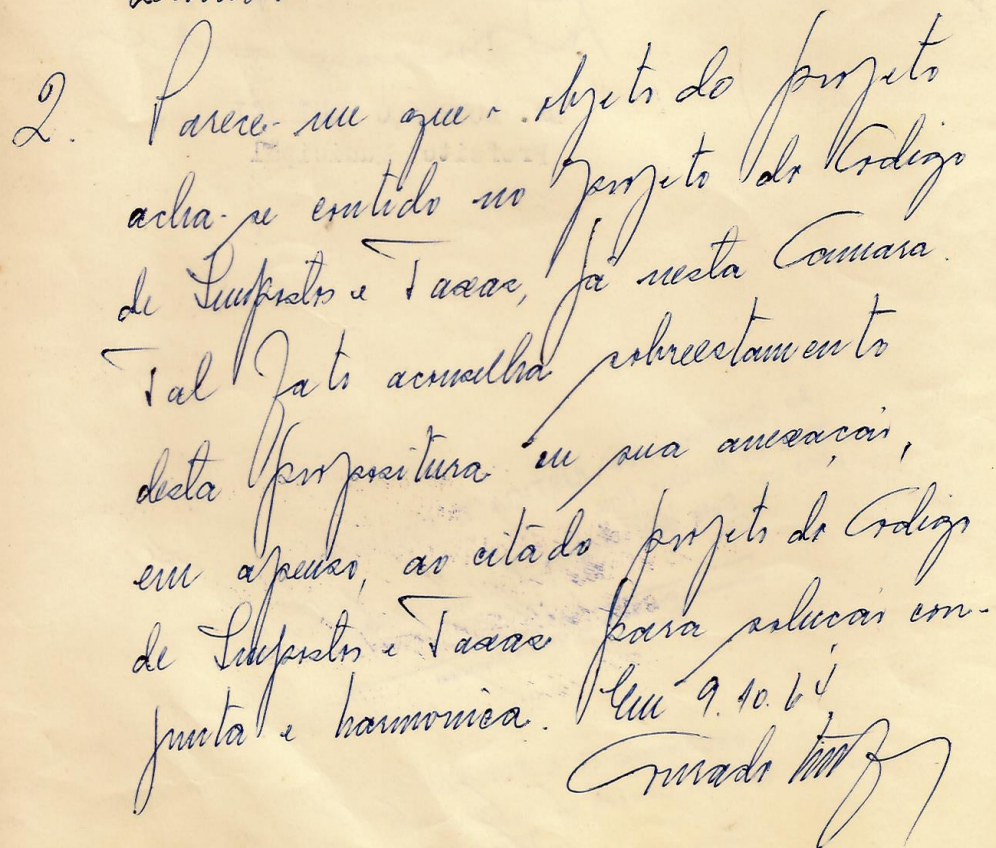 2. Parece-me que o objeto do projeto
acha-se contido no projeto do Codigo
de Impostos e Taxas, já nesta Camara.
Tal fato aconselha sobreestamento
desta propositura ou sua anexação,
em apenso, ao citado projeto do Codigo
de Impostos e Taxas para solução con-
junta e harmonica. Em 9.10.64